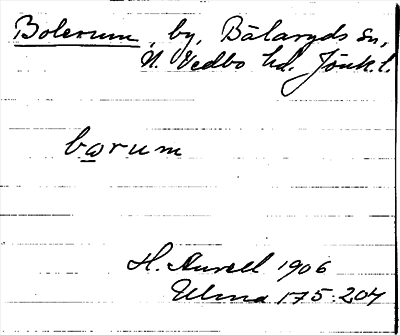 Bolerum, by, Bälaryds sn,
N. Vedbo hd. Jönk.l.
bɷrum
H. Aurell 1906
Ulma 175:204